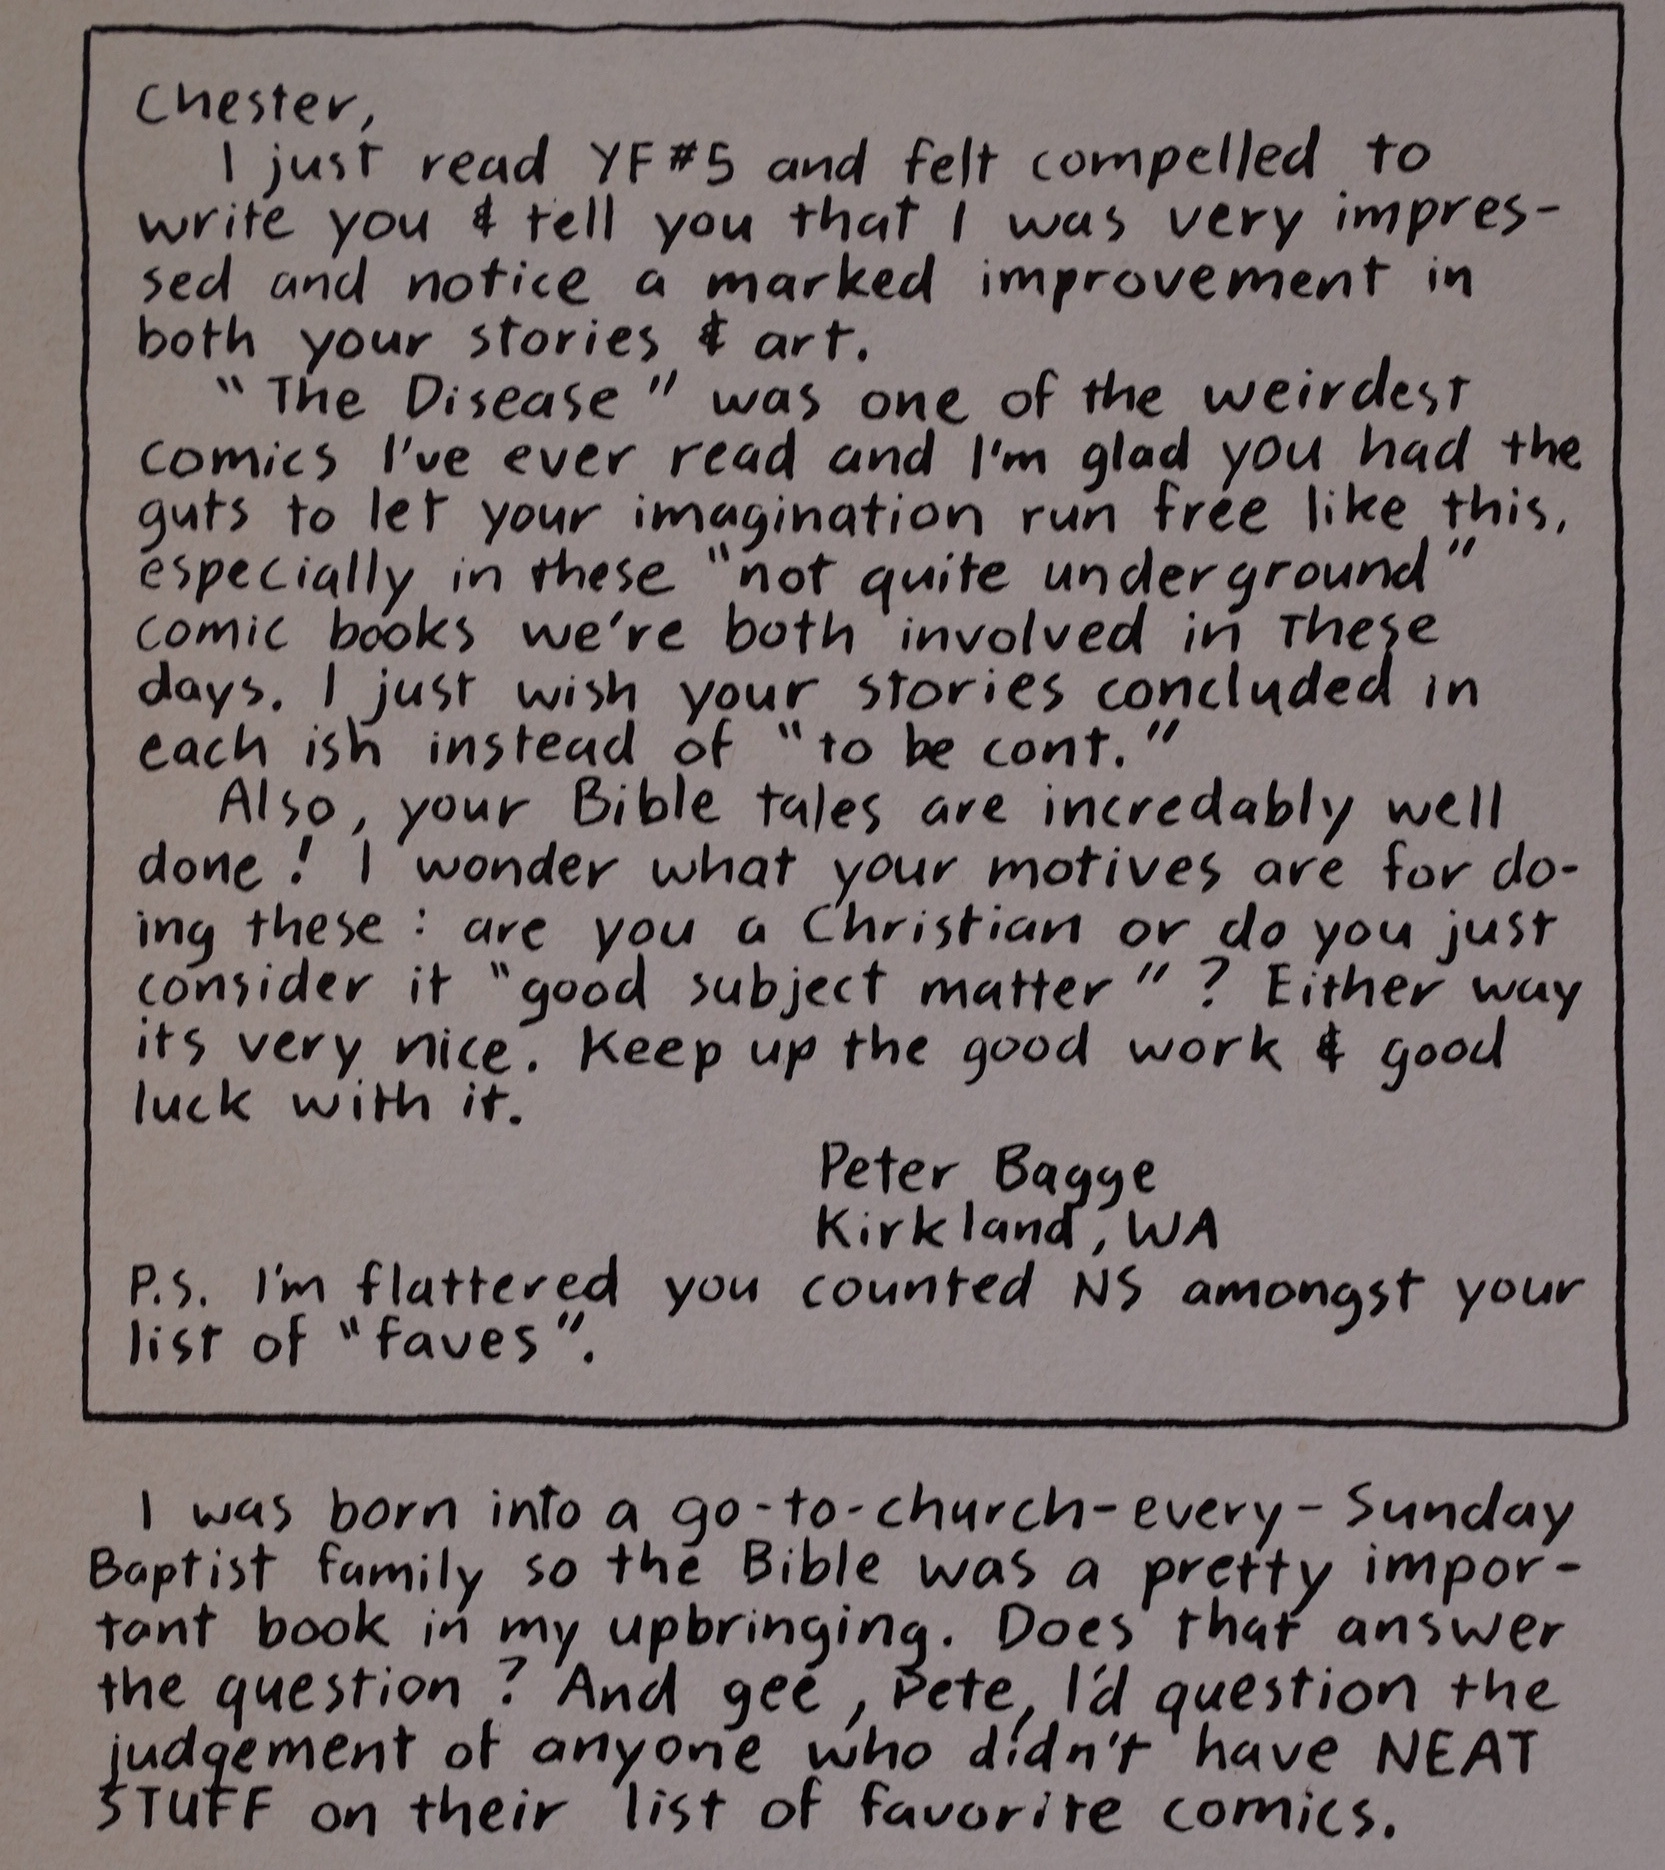 Chester,
I just read YF#5 and felt compelled to
write you & tell you that I was very impres-
sed and notice a marked improvement in
both your stories & art.
"The Disease" was one of the weirdest
comics I've ever read and I'm glad you had the
guts to let your imagination run free like this,
especially in these "not quite underground"
comic books we're both involved in these
days. I just wish your stories concluded in
each ish instead of "to be cont."
Also, your Bible tales are incredably well
done! I wonder what your motives are for do-
ing these: are you a Christian or do you just
consider it "good subject matter"? Either way
its very nice. Keep up the good work & good
luck with it.
Peter Bagge
Kirkland, WA
P.S. I'm flattered you counted NS amongst your
list of "faves".
I was born into a go-to-church-every-Sunday
Baptist family so the Bible was a pretty impor-
tant book in my upbringing. Does that answer
the question? And gee, Pete, I'd question the
judgement of anyone who didn't have NEAT
STUFF on their list of favorite comics.